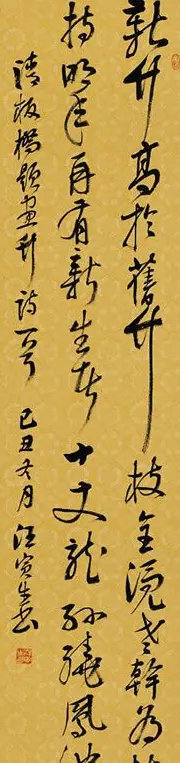 新竹高於舊竹枝全凭老幹為
持明年再有新生者十丈龍孫繞鳳池
清板橋題畫竹詩一首 己丑冬月 汪寅生书